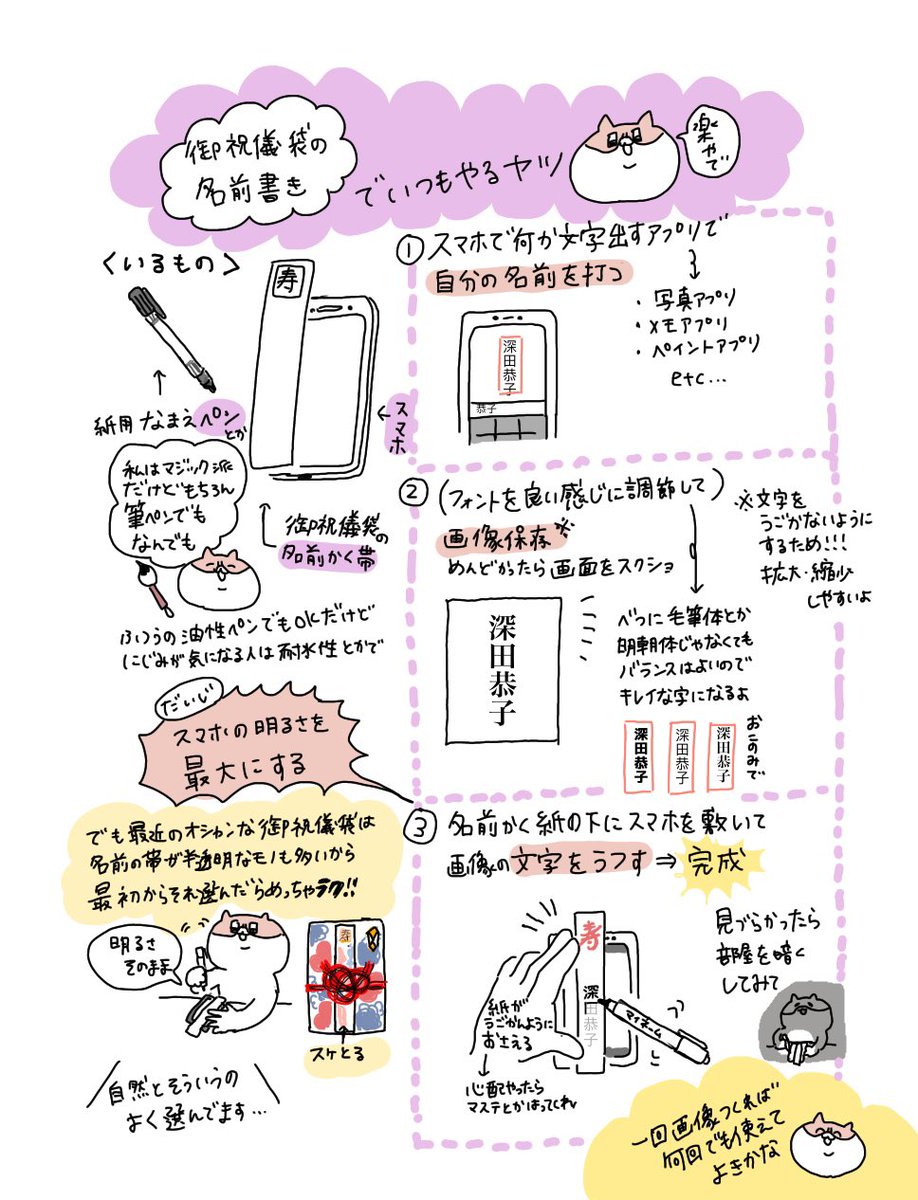 御祝儀袋の
名前書き
でいつもやるヤツ
楽やで
<いるもの>
寿
紙用なまえペン
とか
←スマホ
私はマジック派
だけどもちろん
筆ペンでも
なんでも
御祝儀袋の
名前かく帯
ふつうの油性ペンでもOKだけど
にじみが気になる人は耐水性とかで
① スマホで何か文字出すアプリで
自分の名前を打つ
・写真アプリ
・メモアプリ
・ペイントアプリ
etc...
深田恭子
恭子
② (フォントを良い感じに調節して)
画像保存※
めんどかったら画面をスクショ
※文字を
うごかないように
するため!!!
拡大・縮少
しやすいよ
深田恭子
べつに毛筆体とか
明朝体じゃなくても
バランスはよいので
キレイな字になるよ
深田恭子
深田恭子
深田恭子
おこのみで
だいじ
スマホの明るさを
最大にする
でも最近のオシャンな御祝儀袋は
名前の帯が半透明なモノも多いから
最初からそれ選んだらめっちゃラク!!
明るさ
そのまま
寿
スケとる
自然とそういうの
よく選んでます…
③ 名前かく紙の下にスマホを敷いて
画像の文字をうつす⇒完成
寿
深田恭子
マイネーム
紙が
うごかんように
おさえる
心配やったら
マステとかはってくれ
見づらかったら
部屋を暗く
してみて
一回画像つくれば
何回でも使えて
よきかな